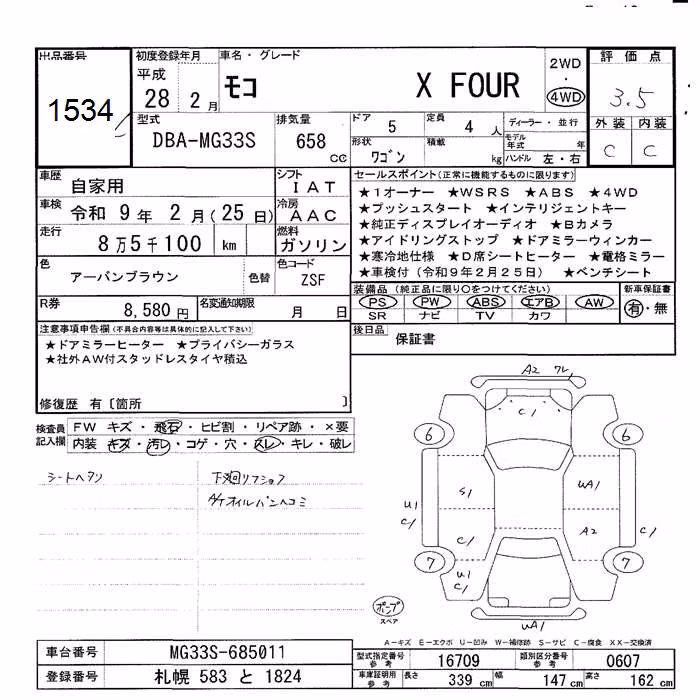 出品番号
1534
初度登録年月
平成
28 2 月
車名・グレード
モコ X FOUR
2WD
・
4WD
評価点
3.5
外装 内装
C C
型式
DBA-MG33S
排気量
658
cc
ドア 5
定員 4 人
形状 ワゴン
積載 kg
ディーラー・並行
モデル年式 年
ハンドル 左・右
車歴
自家用
シフト
IAT
車検
令和 9 年 2 月(25 日)
冷房
AAC
走行
8万5千100 km
燃料
ガソリン
色
アーバンブラウン
色替
色コード
ZSF
R券
8,580 円
名変通知期限
月 日
セールスポイント(正常に機能するものに限ります)
★1オーナー ★WSRS ★ABS ★4WD
★プッシュスタート ★インテリジェントキー
★純正ディスプレイオーディオ ★Bカメラ
★アイドリングストップ ★ドアミラーウィンカー
★寒冷地仕様 ★D席シートヒーター ★電格ミラー
★車検付(令和9年2月25日) ★ベンチシート
装備品(純正品に限り○をつけてください)
PS PW ABS エアB AW
SR ナビ TV カワ
新車保証書
有・無
後日品
保証書
注意事項申告欄(不具合内容等は具体的に記入して下さい)
★ドアミラーヒーター ★プライバシーガラス
★社外AW付スタッドレスタイヤ積込
修復歴 有〔箇所 〕
検査員記入欄
FW キズ・飛石・ヒビ割・リペア跡・×要
内装 キズ・汚レ・コゲ・穴・スレ・キレ・破レ
シートヘタリ
下廻リフショク
A/Tオイルパンヘコミ
A2
C/
6 6
S/
UA/
U/
C/
C/
A2
C/
7 7
U/
C/
UA/
ポンプ
スペア
A-キズ E-エクボ U-凹み W-補修跡 S-サビ C-腐食 XX-交換済
車台番号
MG33S-685011
登録番号
札幌 583 と 1824
型式指定番号
参考
16709
類別区分番号
参考
0607
車庫証明用
参考
長さ 339 cm
幅 147 cm
高さ 162 cm